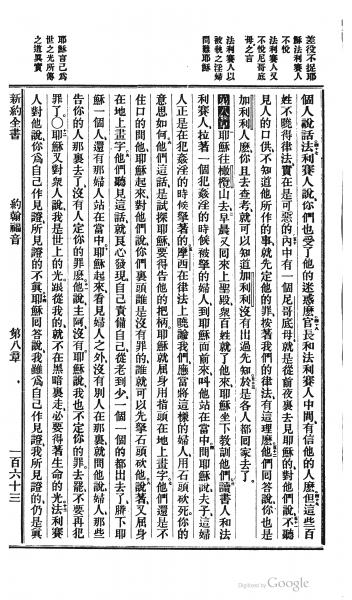 差役不捉耶
穌法利賽人
不悅
法利賽人又
不悅尼哥底
母之言
法利賽人以
被執之淫婦
問難耶穌
耶穌言己爲
世之光所傳
之道真實
個人說話法利賽人說你們也受了他的迷惑麽官長和法利賽人中間有信他的人麽但這些百
姓不曉得律法實在是可惡的內中有一個尼哥底母就是從前夜裏去見耶穌的對他們說不聽
見人的口供不知道他所作的事就先定他的罪按著我們的律法有這理麽他們回答說你也是
加利利人麽你且去查考就可以知道加利利沒有出過先知於是各人都回家去了
第八章耶穌往橄欖山去早晨又回來上聖殿衆百姓就了他來耶穌坐下教訓他們讀書人和法
利賽人拉著一個犯姦淫的時候被拏的婦人到耶穌面前來叫他站在當中間耶穌說夫子這婦
人正是在犯姦淫的時候拏著的摩西在律法上曉諭我們應當將這樣的婦人用石頭砍死你的
意思如何他們這話是試探耶穌要得告他的把柄耶穌就屈身用指頭在地上畫字他們還是不
住口的問他耶穌起來對他們說你們裏頭誰是沒有罪的誰就可以先拏石頭砍他說著又屈身
在地上畫字他們聽見這話就良心發現自己責備自己從老到少一個一個的都出去了賸下耶
穌一個人還有那婦人站在當中耶穌起來看見婦人之外沒有別人在那裏就問他說婦人那些
告你的人那裏去了沒有人定你的罪麽他說主阿沒有耶穌說我也不定你的罪去罷不要再犯
罪了○耶穌又對衆人說我是世上的光跟從我的就不在黑暗裏走必要得著生命的光法利賽
人對他說你爲自己作見證所見證的不眞耶穌回答說我雖爲自己作見證我所見證的仍是眞
新約全書 約翰福音 第八章 一百六十三
Digitized by Google